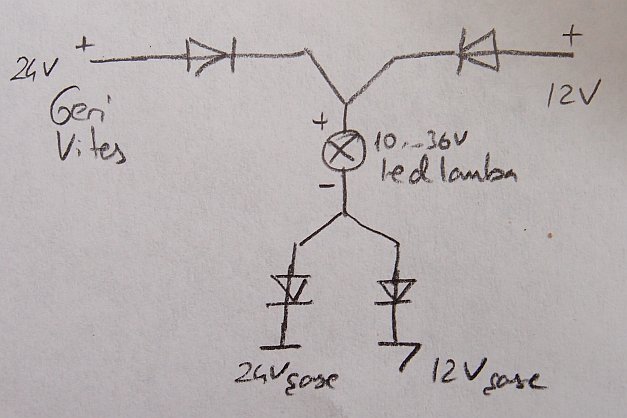 24V + + 12V
Geri
Vites
+ 10...36V
led lamba
-
24V şase 12V şase